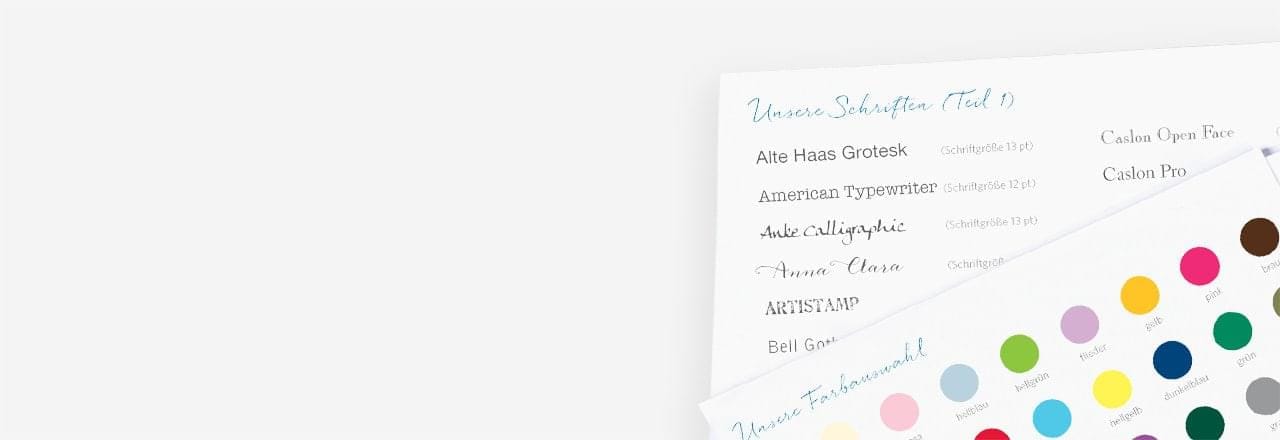 Unsere Schriften (Teil 1)
Alte Haas Grotesk (Schriftgröße 13 pt)
American Typewriter (Schriftgröße 12 pt)
Anke Calligraphic (Schriftgröße 13 pt)
Anna Clara
ARTISTAMP
Bell
Caslon Open Face
Caslon Pro
Unsere Farbauswahl
hellblau
hellgrün
flieder
gelb
pink
hellgelb
dunkelblau
grün